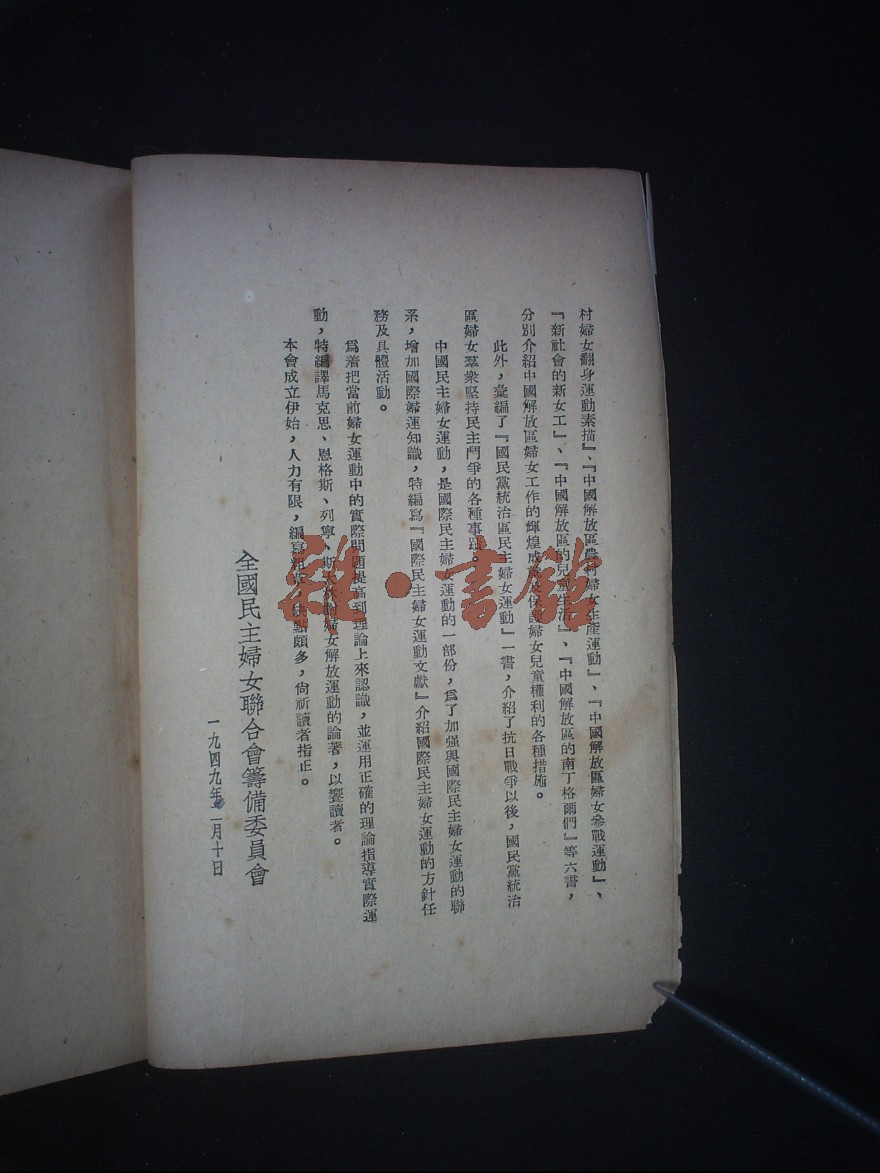 村婦女翻身運動素描』、『中國解放區農村婦女生產運動』、『中國解放區婦女參戰運動』、
『新社會的新女工』、『中國解放區的兒童生活』、『中國解放區的南丁格爾們』等六書，
分別介紹中國解放區婦女工作的輝煌成就及保護婦女兒童權利的各種措施。
此外，彙編了『國民黨統治區民主婦女運動』一書，介紹了抗日戰爭以後，國民黨統治
區婦女羣衆堅持民主鬥爭的各種事蹟。
中國民主婦女運動，是國際民主婦女運動的一部份，爲了加强與國際民主婦女運動的聯
系，增加國際婦運知識，特編寫『國際民主婦女運動文獻』介紹國際民主婦女運動的方針任
務及具體活動。
爲着把當前婦女運動中的實際問題提高到理論上來認識，並運用正確的理論指導實際運
動，特編譯馬克思、恩格斯、列寧、斯大林對婦女解放運動的論著，以饗讀者。
本會成立伊始，人力有限，編寫粗，缺點頗多，尙祈讀者指正。
全國民主婦女聯合會籌備委員會
一九四九年二月十日
雜·書館